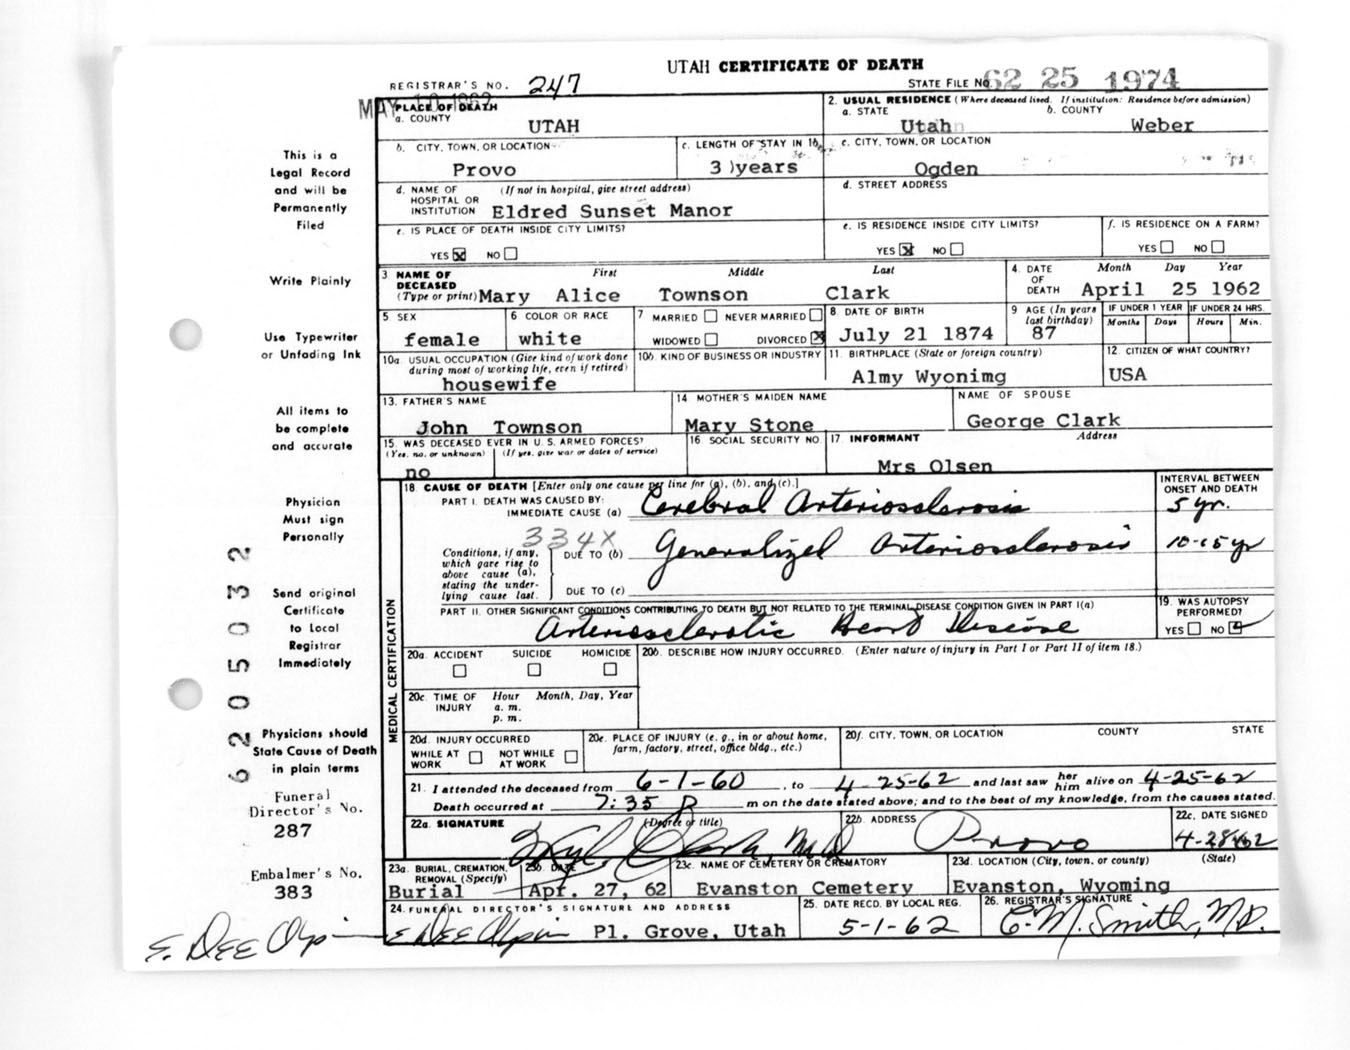 UTAH CERTIFICATE OF DEATH
REGISTRAR'S NO. 247
STATE FILE NO. 62 25 1974
MAY 10 1962
PLACE OF DEATH
a. COUNTY
UTAH
2. USUAL RESIDENCE (Where deceased lived. If institution: Residence before admission)
a. STATE b. COUNTY
Utah Weber
b. CITY, TOWN, OR LOCATION
Provo
c. LENGTH OF STAY IN 1b
3 years
c. CITY, TOWN, OR LOCATION
Ogden
d. NAME OF HOSPITAL OR INSTITUTION (If not in hospital, give street address)
Eldred Sunset Manor
d. STREET ADDRESS
e. IS PLACE OF DEATH INSIDE CITY LIMITS?
YES NO
e. IS RESIDENCE INSIDE CITY LIMITS?
YES NO
f. IS RESIDENCE ON A FARM?
YES NO
3 NAME OF DECEASED (Type or print) First Middle Last
Mary Alice Townson Clark
4. DATE OF DEATH Month Day Year
April 25 1962
5 SEX
female
6 COLOR OR RACE
white
7 MARRIED NEVER MARRIED
WIDOWED DIVORCED
8 DATE OF BIRTH
July 21 1874
9 AGE (In years last birthday)
87
IF UNDER 1 YEAR IF UNDER 24 HRS.
Months Days Hours Min.
10a. USUAL OCCUPATION (Give kind of work done during most of working life, even if retired)
housewife
10b. KIND OF BUSINESS OR INDUSTRY
11. BIRTHPLACE (State or foreign country)
Almy Wyonimg
12. CITIZEN OF WHAT COUNTRY?
USA
13. FATHER'S NAME
John Townson
14 MOTHER'S MAIDEN NAME
Mary Stone
NAME OF SPOUSE
George Clark
15. WAS DECEASED EVER IN U. S. ARMED FORCES?
(Yes, no, or unknown) (If yes, give war or dates of service)
no
16. SOCIAL SECURITY NO.
17. INFORMANT Address
Mrs Olsen
18. CAUSE OF DEATH [Enter only one cause per line for (a), (b), and (c).]
INTERVAL BETWEEN ONSET AND DEATH
PART I. DEATH WAS CAUSED BY:
IMMEDIATE CAUSE (a) Cerebral Arteriosclerosis 5 yr.
334X
Conditions, if any, which gave rise to above cause (a), stating the underlying cause last.
DUE TO (b) Generalized Arteriosclerosis 10-15 yr
DUE TO (c)
PART II. OTHER SIGNIFICANT CONDITIONS CONTRIBUTING TO DEATH BUT NOT RELATED TO THE TERMINAL DISEASE CONDITION GIVEN IN PART I(a)
Arteriosclerotic Heart Disease
19. WAS AUTOPSY PERFORMED?
YES NO
MEDICAL CERTIFICATION
20a. ACCIDENT SUICIDE HOMICIDE
20b. DESCRIBE HOW INJURY OCCURRED. (Enter nature of injury in Part I or Part II of item 18.)
20c. TIME OF INJURY Hour Month, Day, Year
a. m.
p. m.
20d. INJURY OCCURRED
WHILE AT WORK NOT WHILE AT WORK
20e. PLACE OF INJURY (e. g., in or about home, farm, factory, street, office bldg., etc.)
20f. CITY, TOWN, OR LOCATION COUNTY STATE
21. I attended the deceased from 6-1-60, to 4-25-62 and last saw her him alive on 4-25-62
Death occurred at 7:35 P m on the date stated above; and to the best of my knowledge, from the causes stated.
22a. SIGNATURE (Degree or title)
Clark, M.D
22b. ADDRESS
Provo
22c. DATE SIGNED
4-28-62
23a. BURIAL, CREMATION, REMOVAL (Specify)
Burial
23b. DATE
Apr. 27, 62
23c. NAME OF CEMETERY OR CREMATORY
Evanston Cemetery
23d. LOCATION (City, town, or county) (State)
Evanston, Wyoming
24. FUNERAL DIRECTOR'S SIGNATURE AND ADDRESS
E Dee Olpin Pl. Grove, Utah
25. DATE RECD. BY LOCAL REG.
5-1-62
26. REGISTRAR'S SIGNATURE
C. M. Smith, M.D.
This is a
Legal Record
and will be
Permanently
Filed
Write Plainly
Use Typewriter
or Unfading Ink
All items to
be complete
and accurate
Physician
Must sign
Personally
Send original
Certificate
to Local
Registrar
Immediately
Physicians should
State Cause of Death
in plain terms
Funeral
Director's No.
287
Embalmer's No.
383
E. Dee Olpin
62 05 032